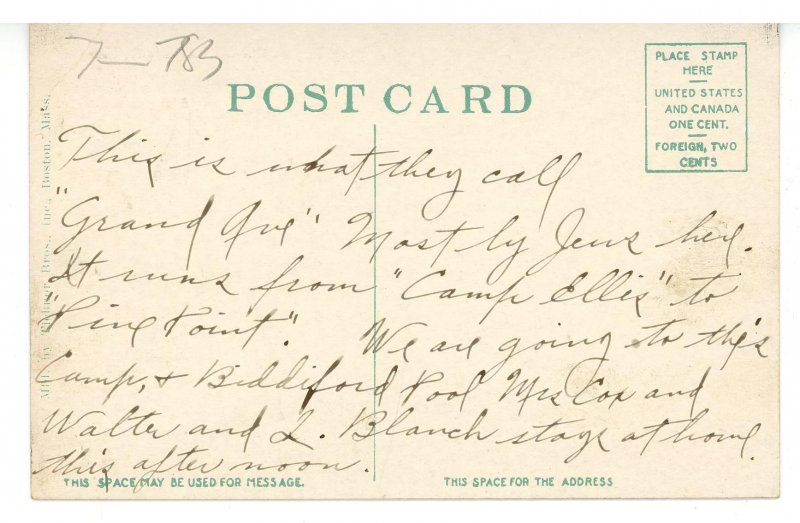 7— 783
POST CARD
PLACE STAMP
HERE
UNITED STATES
AND CANADA
ONE CENT.
FOREIGN, TWO
CENTS
This is what they call
"Grand Ave" Mostly Jews here.
It runs from "Camp Ellis" to
"Pine Point". We are going to this
Camp, & Biddiford Pool Mrs Cox and
Walter and L. Blanch stays at home
this after noon.
THIS SPACE MAY BE USED FOR MESSAGE.
THIS SPACE FOR THE ADDRESS
Bros., Inc., Boston, Mass.